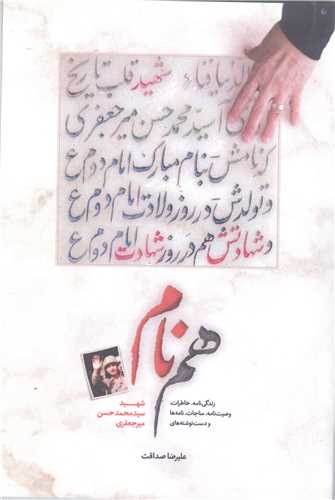 الدنیا فناء شهید قلب تاریخ
آسید محمد حسن میرجعفری
که نامش بنام مبارک امام دوم ع
و تولدش در روز ولادت امام دوم ع
و شهادتش هم در روز شهادت امام دوم ع
هم نام
زندگی‌نامه، خاطرات،
وصیت‌نامه، مناجات، نامه‌ها
و دست‌نوشته‌های
شهید
سید محمد حسن
میرجعفری
علیرضا صداقت